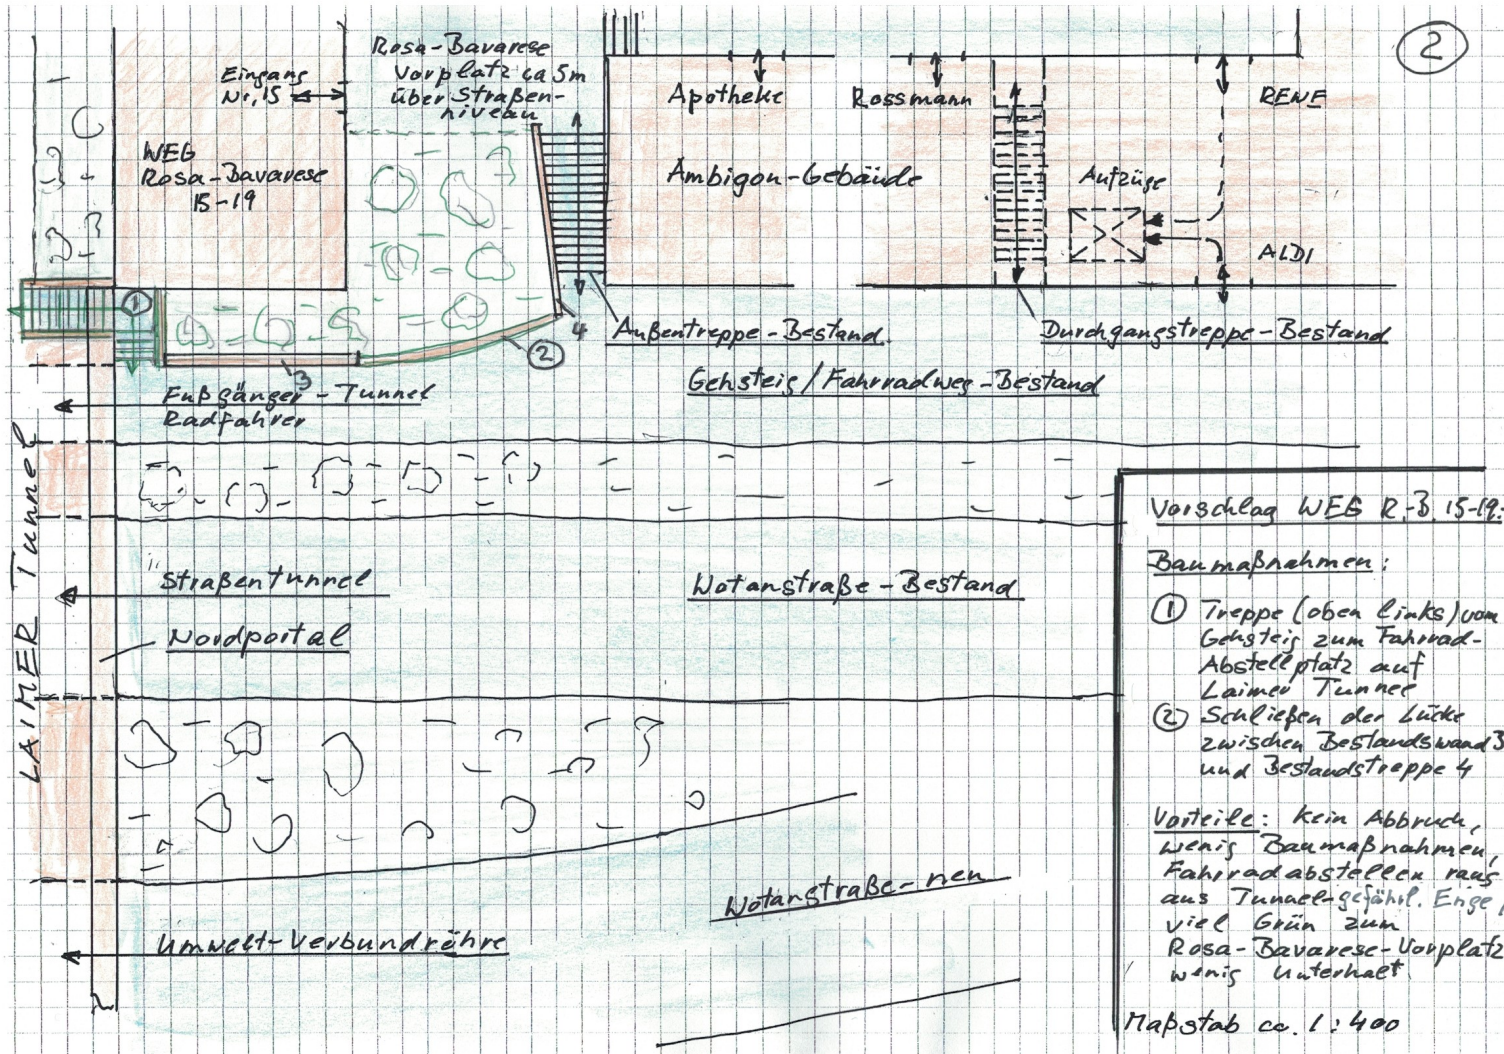 2
Rosa-Bavarese
Vorplatz ca 5m
über Straßen-
niveau
Eingang
Nr. 15
WEG
Rosa-Bavarese
15-19
Apotheke
Rossmann
REWE
Ambigon-Gebäude
Aufzüge
ALDI
1
4
2
3
Außentreppe-Bestand
Durchgangstreppe-Bestand
Gehsteig/Fahrradweg-Bestand
Fußgänger-Tunnel
Radfahrer
LAIMER Tunnel
Straßentunnel
Wotanstraße-Bestand
Nordportal
Wotanstraße-neu
Umwelt-Verbundröhre
Vorschlag WEG R.-B. 15-19:
Baumaßnahmen:
1 Treppe (oben links) vom
Gehsteig zum Fahrrad-
Abstellplatz auf
Laimer Tunnel
2 Schließen der Lücke
zwischen Bestandswand 3
und Bestandstreppe 4
Vorteile: Kein Abbruch,
wenig Baumaßnahmen,
Fahrradabstellen raus
aus Tunnel-gefährl. Enge,
viel Grün zum
Rosa-Bavarese-Vorplatz
wenig Unterhalt.
Maßstab ca. 1:400